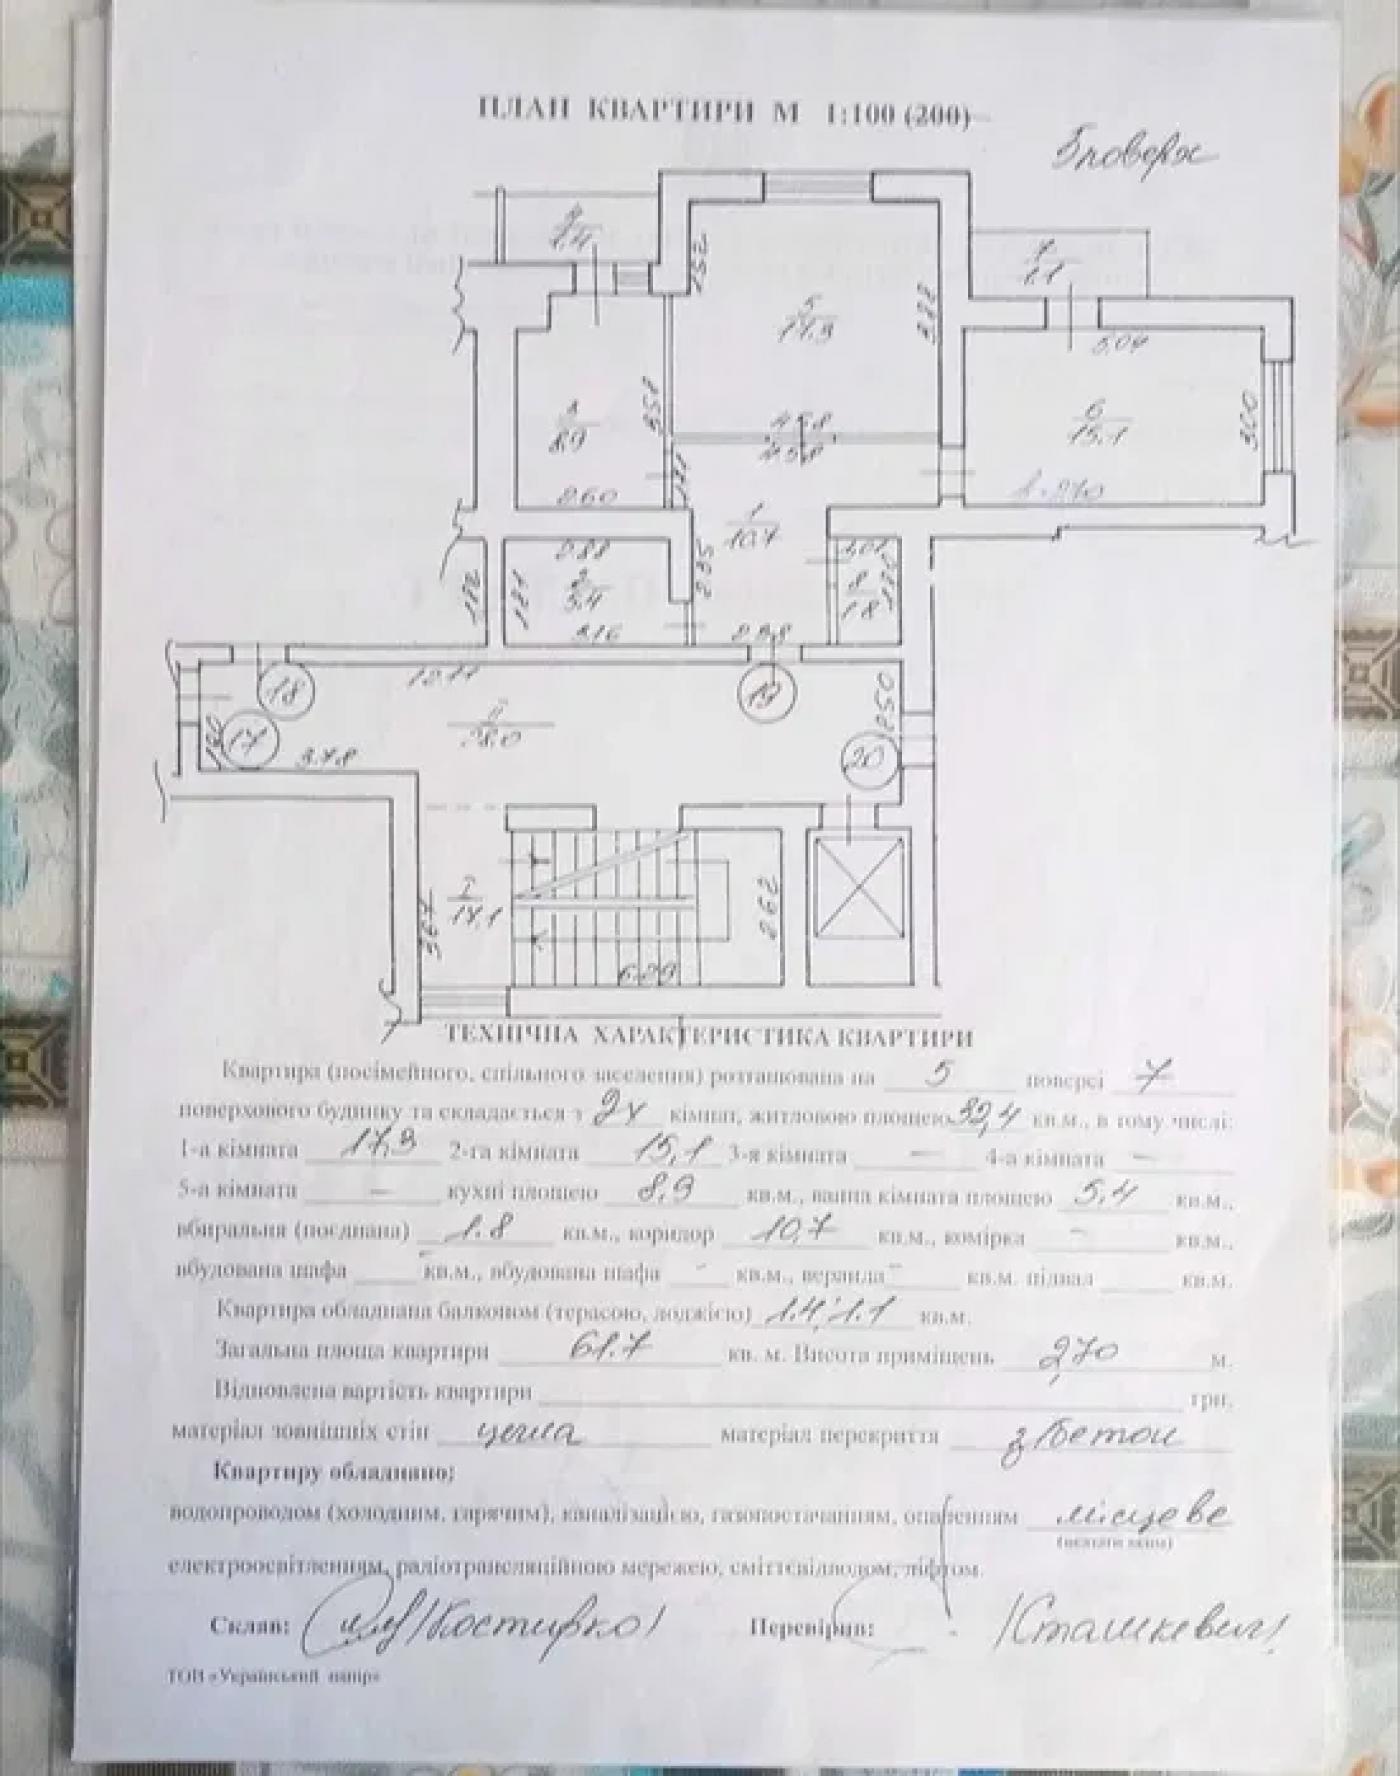 ПЛАН КВАРТИРИ М 1:100 (200)
5 поверх
1.4
7
1.1
152
5
17.3
3.78
5,04
6
15.1
300
3
8.9
4.58
4.58
2.60
1
10.7
2.88
2
5.4
3.16
182
181
235
2.38
8
1.8
12.11
18
17
19
20
250
II
28.0
180
3.78
I
14,1
367
262
6.29
ТЕХНІЧНА ХАРАКТЕРИСТИКА КВАРТИРИ
Квартира (посімейного, спільного заселення) розташована на 5 поверсі 7
поверхового будинку та складається з 2х кімнат, житловою площею 32,4 кв.м., в тому числі:
1-а кімната 17,3 2-га кімната 15,1 3-я кімната — 4-а кімната —
5-а кімната — кухні площею 8,9 кв.м., ванна кімната площею 5,4 кв.м.,
вбиральня (поєднана) 1.8 кв.м., коридор 10,7 кв.м., комірка - кв.м.,
вбудована шафа - кв.м., вбудована шафа - кв.м., веранда - кв.м. підвал кв.м.
Квартира обладнана балконом (терасою, лоджією) 1.4; 1.1 кв.м.
Загальна площа квартири 61.7 кв. м. Висота приміщень 2,70 м.
Відновлена вартість квартири грн.
матеріал зовнішніх стін цегла матеріал перекриття з/бетон
Квартиру обладнано:
водопроводом (холодним, гарячим), каналізацією, газопостачанням, опаленням місцеве
(вказати яким)
електроосвітленням, радіотрансляційною мережею, сміттєвідводом, ліфтом.
Склав: /Костирко/ Перевірив: /Сташкевич/
ТОВ «Український папір»